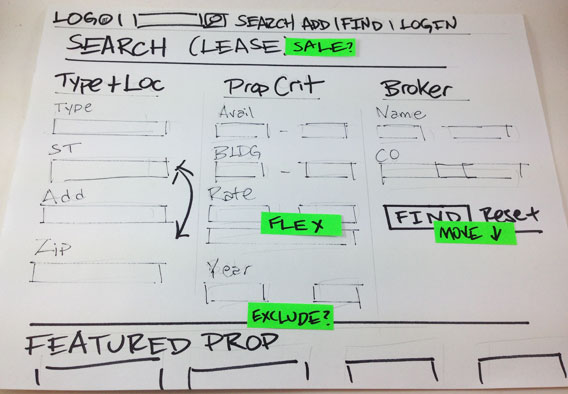 LOGO | SEARCH ADD | FIND | LOGIN
SEARCH (LEASE SALE?
Type + Loc
Type
ST
Add
Zip
Prop Crit
Avail -
BLDG -
Rate
FLEX
Year
EXCLUDE?
Broker
Name
CO
FIND Reset
MOVE ↓
FEATURED PROP